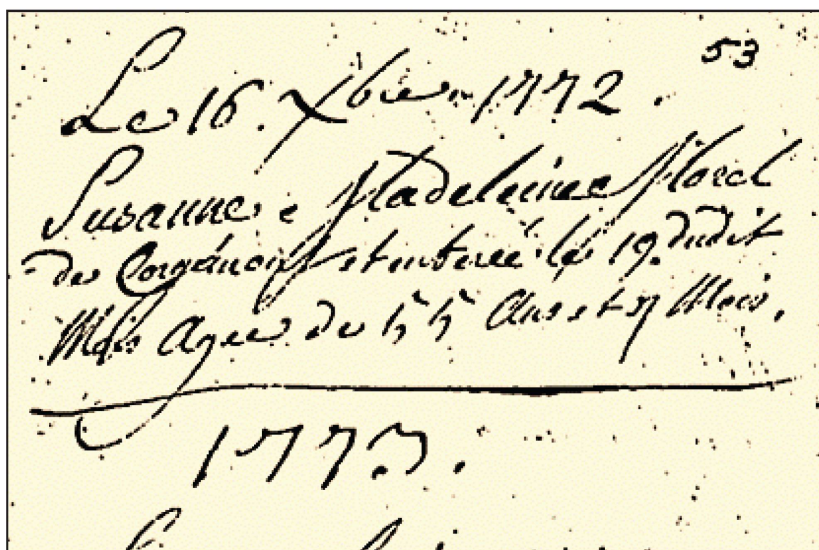 53
Le 16. Xbre 1772.
Susanne Madeleine Morel
de Corgémont et enterée le 19. dudit
Mois Agée de 55 Ans et 7 Mois.
1773.